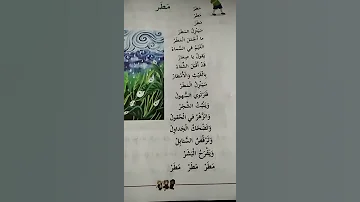 مَطَر
مَطَر
مَطَر
مَطَر
سَيَنْزِلُ المَطَر
ما أَجْمَلَ المَطَر
الغَيْمُ في السَّماءْ
يَقولُ يا صِغارْ
قَدْ أَقْبَلَ الشِّتاءْ
بِالْغَيْثِ وَالْأَمْطارْ
سَيَنْزِلُ المَطَر
فَتَرْتَوي السُّهولْ
وَيَنْبُتُ الشَّجَرْ
وَالزَّهْرُ في الْحُقولْ
وَتَضْحَكُ الْجَداوِلْ
وَتَرْقُصُ السَّنابِلْ
وَيَفْرَحُ الْبَشَرْ
مَطَرْ مَطَرْ مَطَرْ